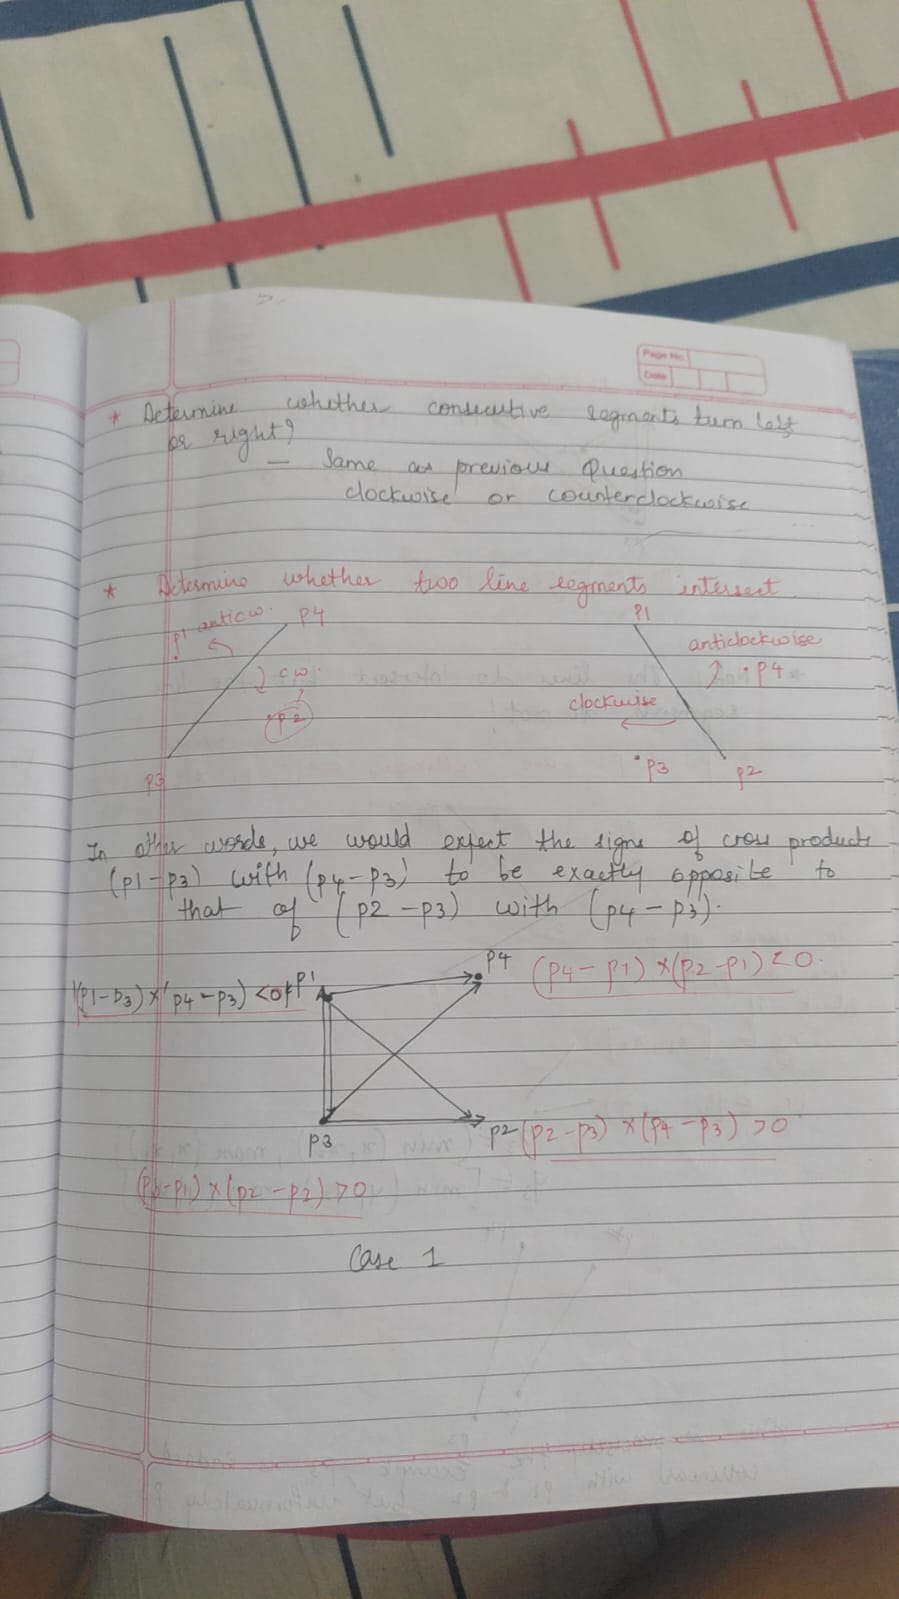 Page No.
Date
* Determine whether consecutive segments turn left
or right?
— Same as previous Question
clockwise or counterclockwise
* Determine whether two line segments intersect
p1 anticw. p4
cw.
p2
p3
p1
anticlockwise
p4
clockwise
p3
p2
In other words, we would expect the signs of cross products
(p1-p3) with (p4-p3) to be exactly opposite to
that of (p2-p3) with (p4-p3).
p4 (p4-p1)×(p2-p1)<0.
(p1-p3)×(p4-p3)<0 p1
p3
p2 (p2-p3)×(p4-p3)>0
-p1)×(p2-p2)>0
Case 1